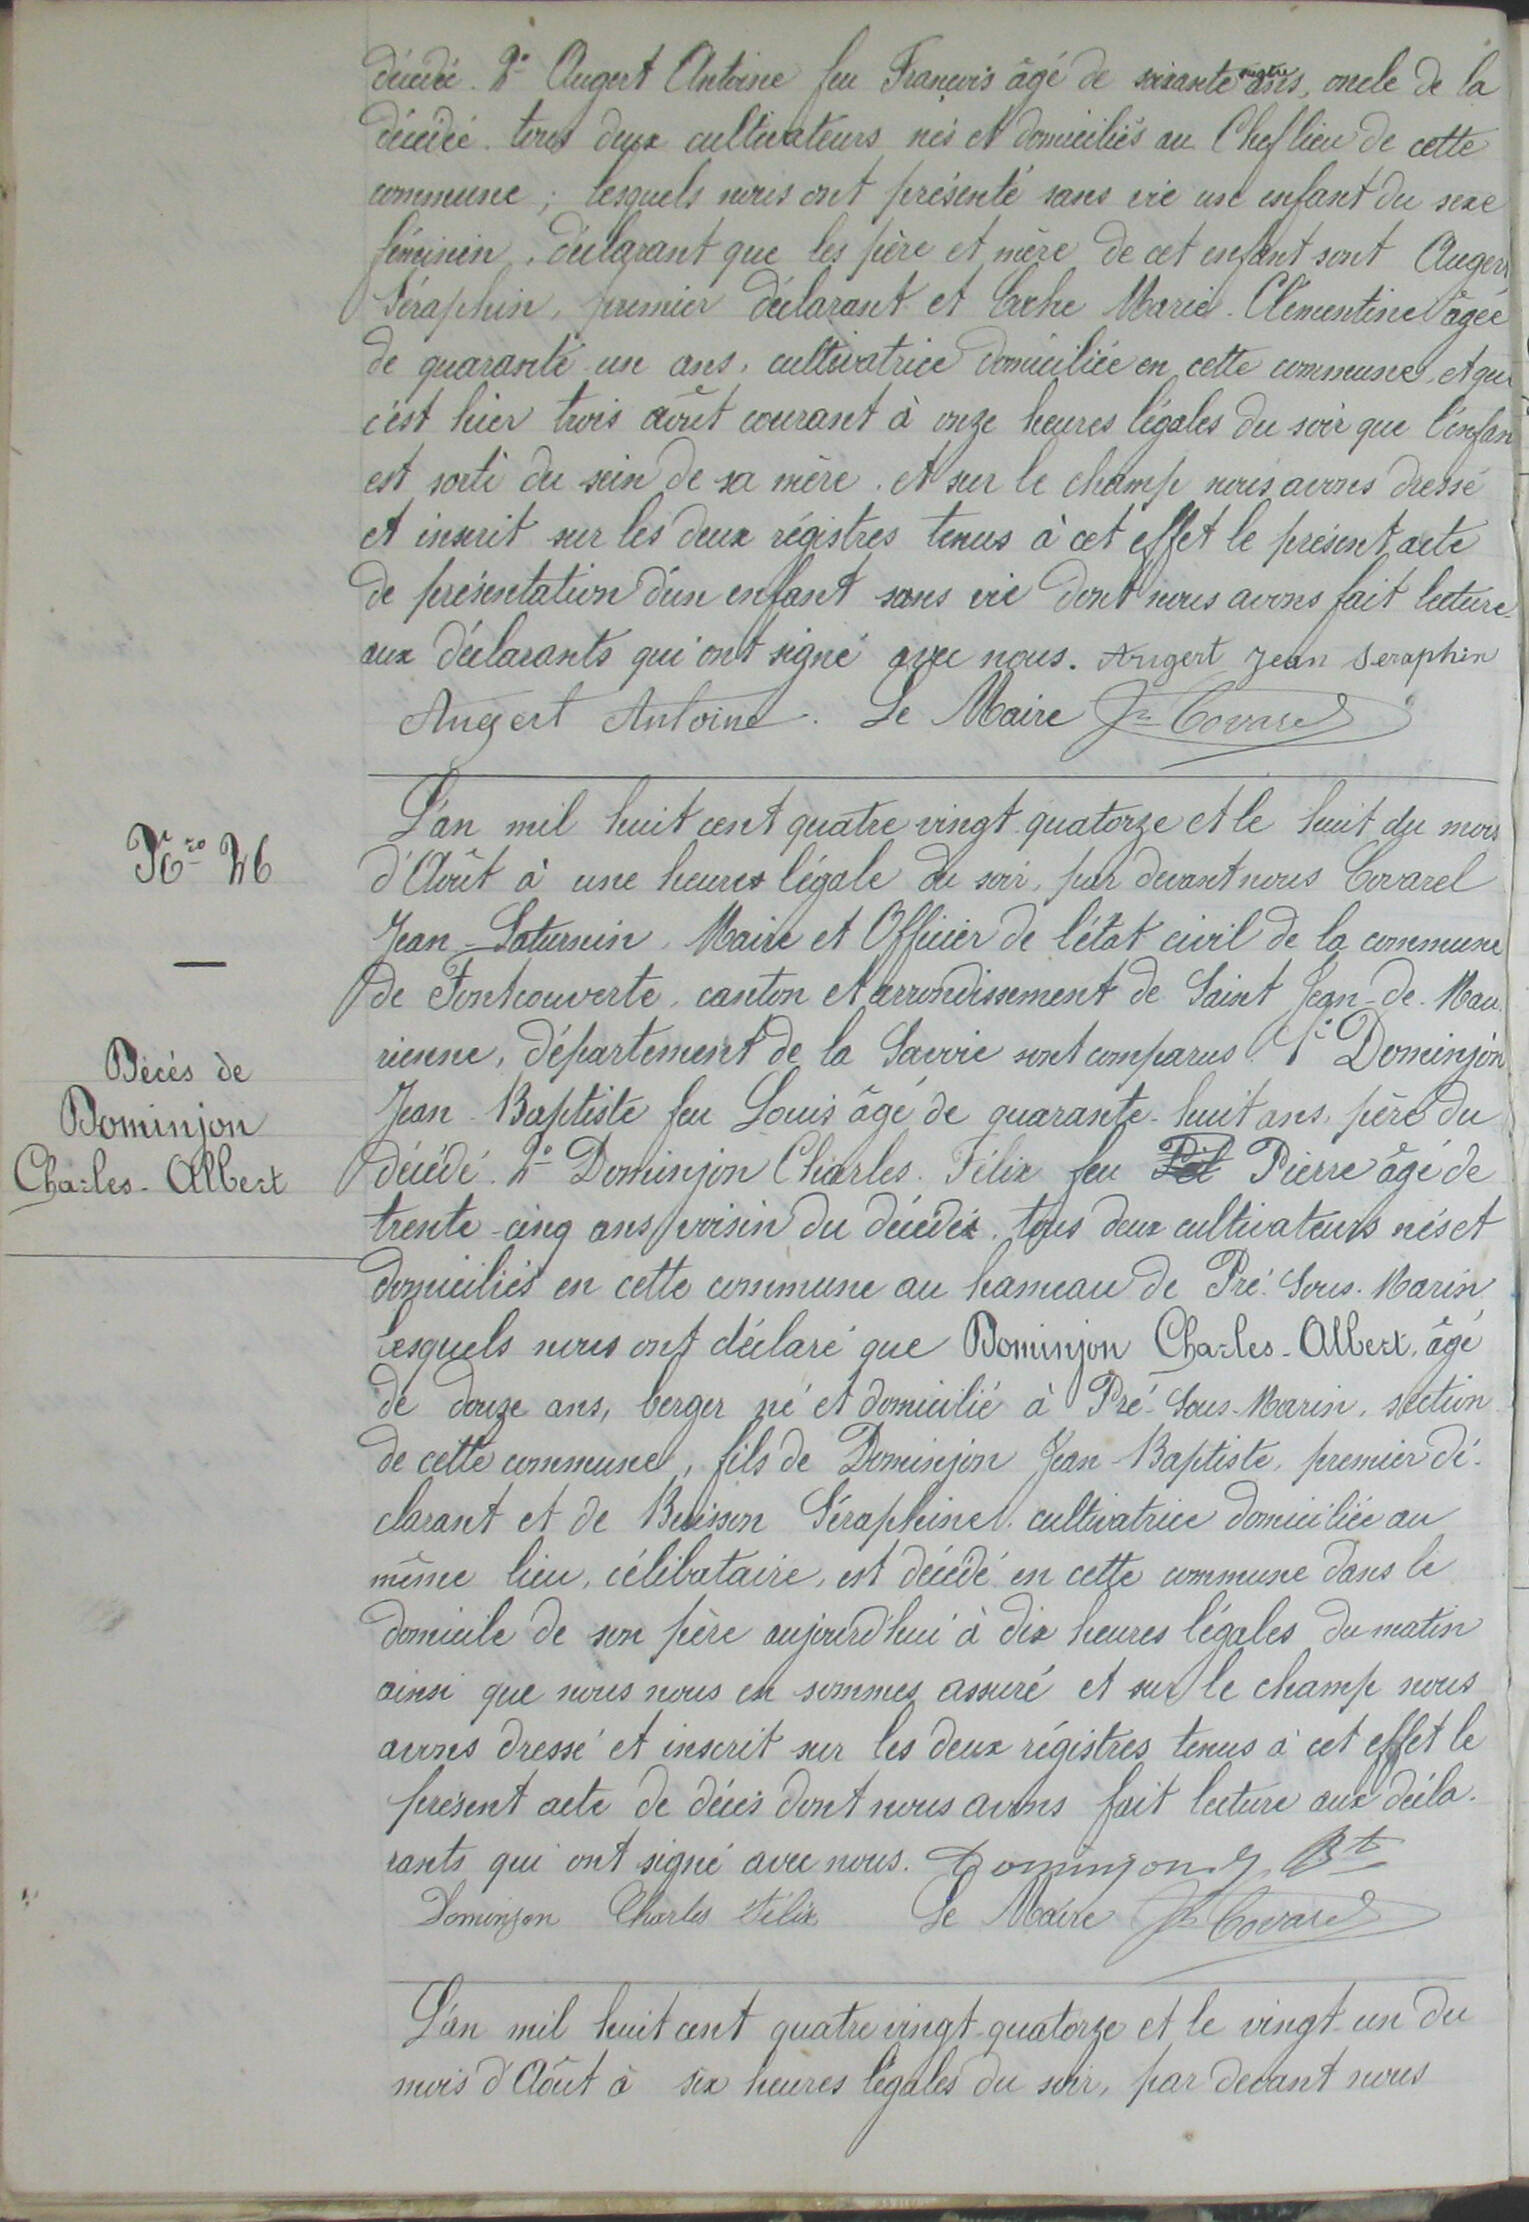 décédé. 2° Augert Antoine feu François âgé de soixante quatre ans, oncle de la
décédée. tous deux cultivateurs nés et domiciliés au Cheflieu de cette
commune ; lesquels nous ont présenté sans vie une enfant du sexe
féminin, déclarant que les père et mère de cet enfant sont Augert
Séraphin, premier déclarant et Marie Clémentine âgée
de quarante-un ans, cultivatrice domiciliée en cette commune, et que
c'est hier trois août courant à onze heures légales du soir que l'enfan
est sorti du sein de sa mère. et sur le champ nous avons dressé
et inscrit sur les deux régistres tenus à cet effet le présent acte
de présentation d'un enfant sans vie dont nous avons fait lecture
aux déclarants qui ont signé avec nous. Augert Jean Seraphin
Augert Antoine. Le Maire Jn Covarel
L'an mil huit cent quatre vingt quatorze et le huit du mois
Nro 26
d'Août à une heure légale du soir, par devant nous Covarel
Jean-Saturnin, Maire et Officier de l'état civil de la commune
de Fontcouverte, canton et arrondissement de Saint Jean-de-Mau
rienne, département de la Savoie sont comparus 1° Dominjon
Décés de
Dominjon
Charles-Albert
Jean-Baptiste feu Louis âgé de quarante-huit ans, père du
décédé. 2° Dominjon Charles-Félix feu Pierre âgé de
trente-cinq ans, voisin du décédé. tous deux cultivateurs nés et
domiciliés en cette commune au hameau de Pré-Sous-Marin
lesquels nous ont déclaré que Dominjon Charles-Albert, âgé
de douze ans, berger né et domicilié à Pré-Sous-Marin, section
de cette commune, fils de Dominjon Jean-Baptiste, premier dé-
clarant et de Buisson Séraphine, cultivatrice domiciliée au
même lieu, célibataire, est décédé en cette commune dans le
domicile de son père aujourd'hui à dix heures légales du matin
ainsi que nous nous en sommes assuré et sur le champ nous
avons dressé et inscrit sur les deux régistres tenus à cet effet le
présent acte de décès dont nous avons fait lecture aux décla-
rants qui ont signé avec nous. Dominjon J Bte
Dominjon Charles Félix Le Maire Jn Covarel
L'an mil huit cent quatre vingt-quatorze et le vingt-un du
mois d'Août à six heures légales du soir, par devant nous